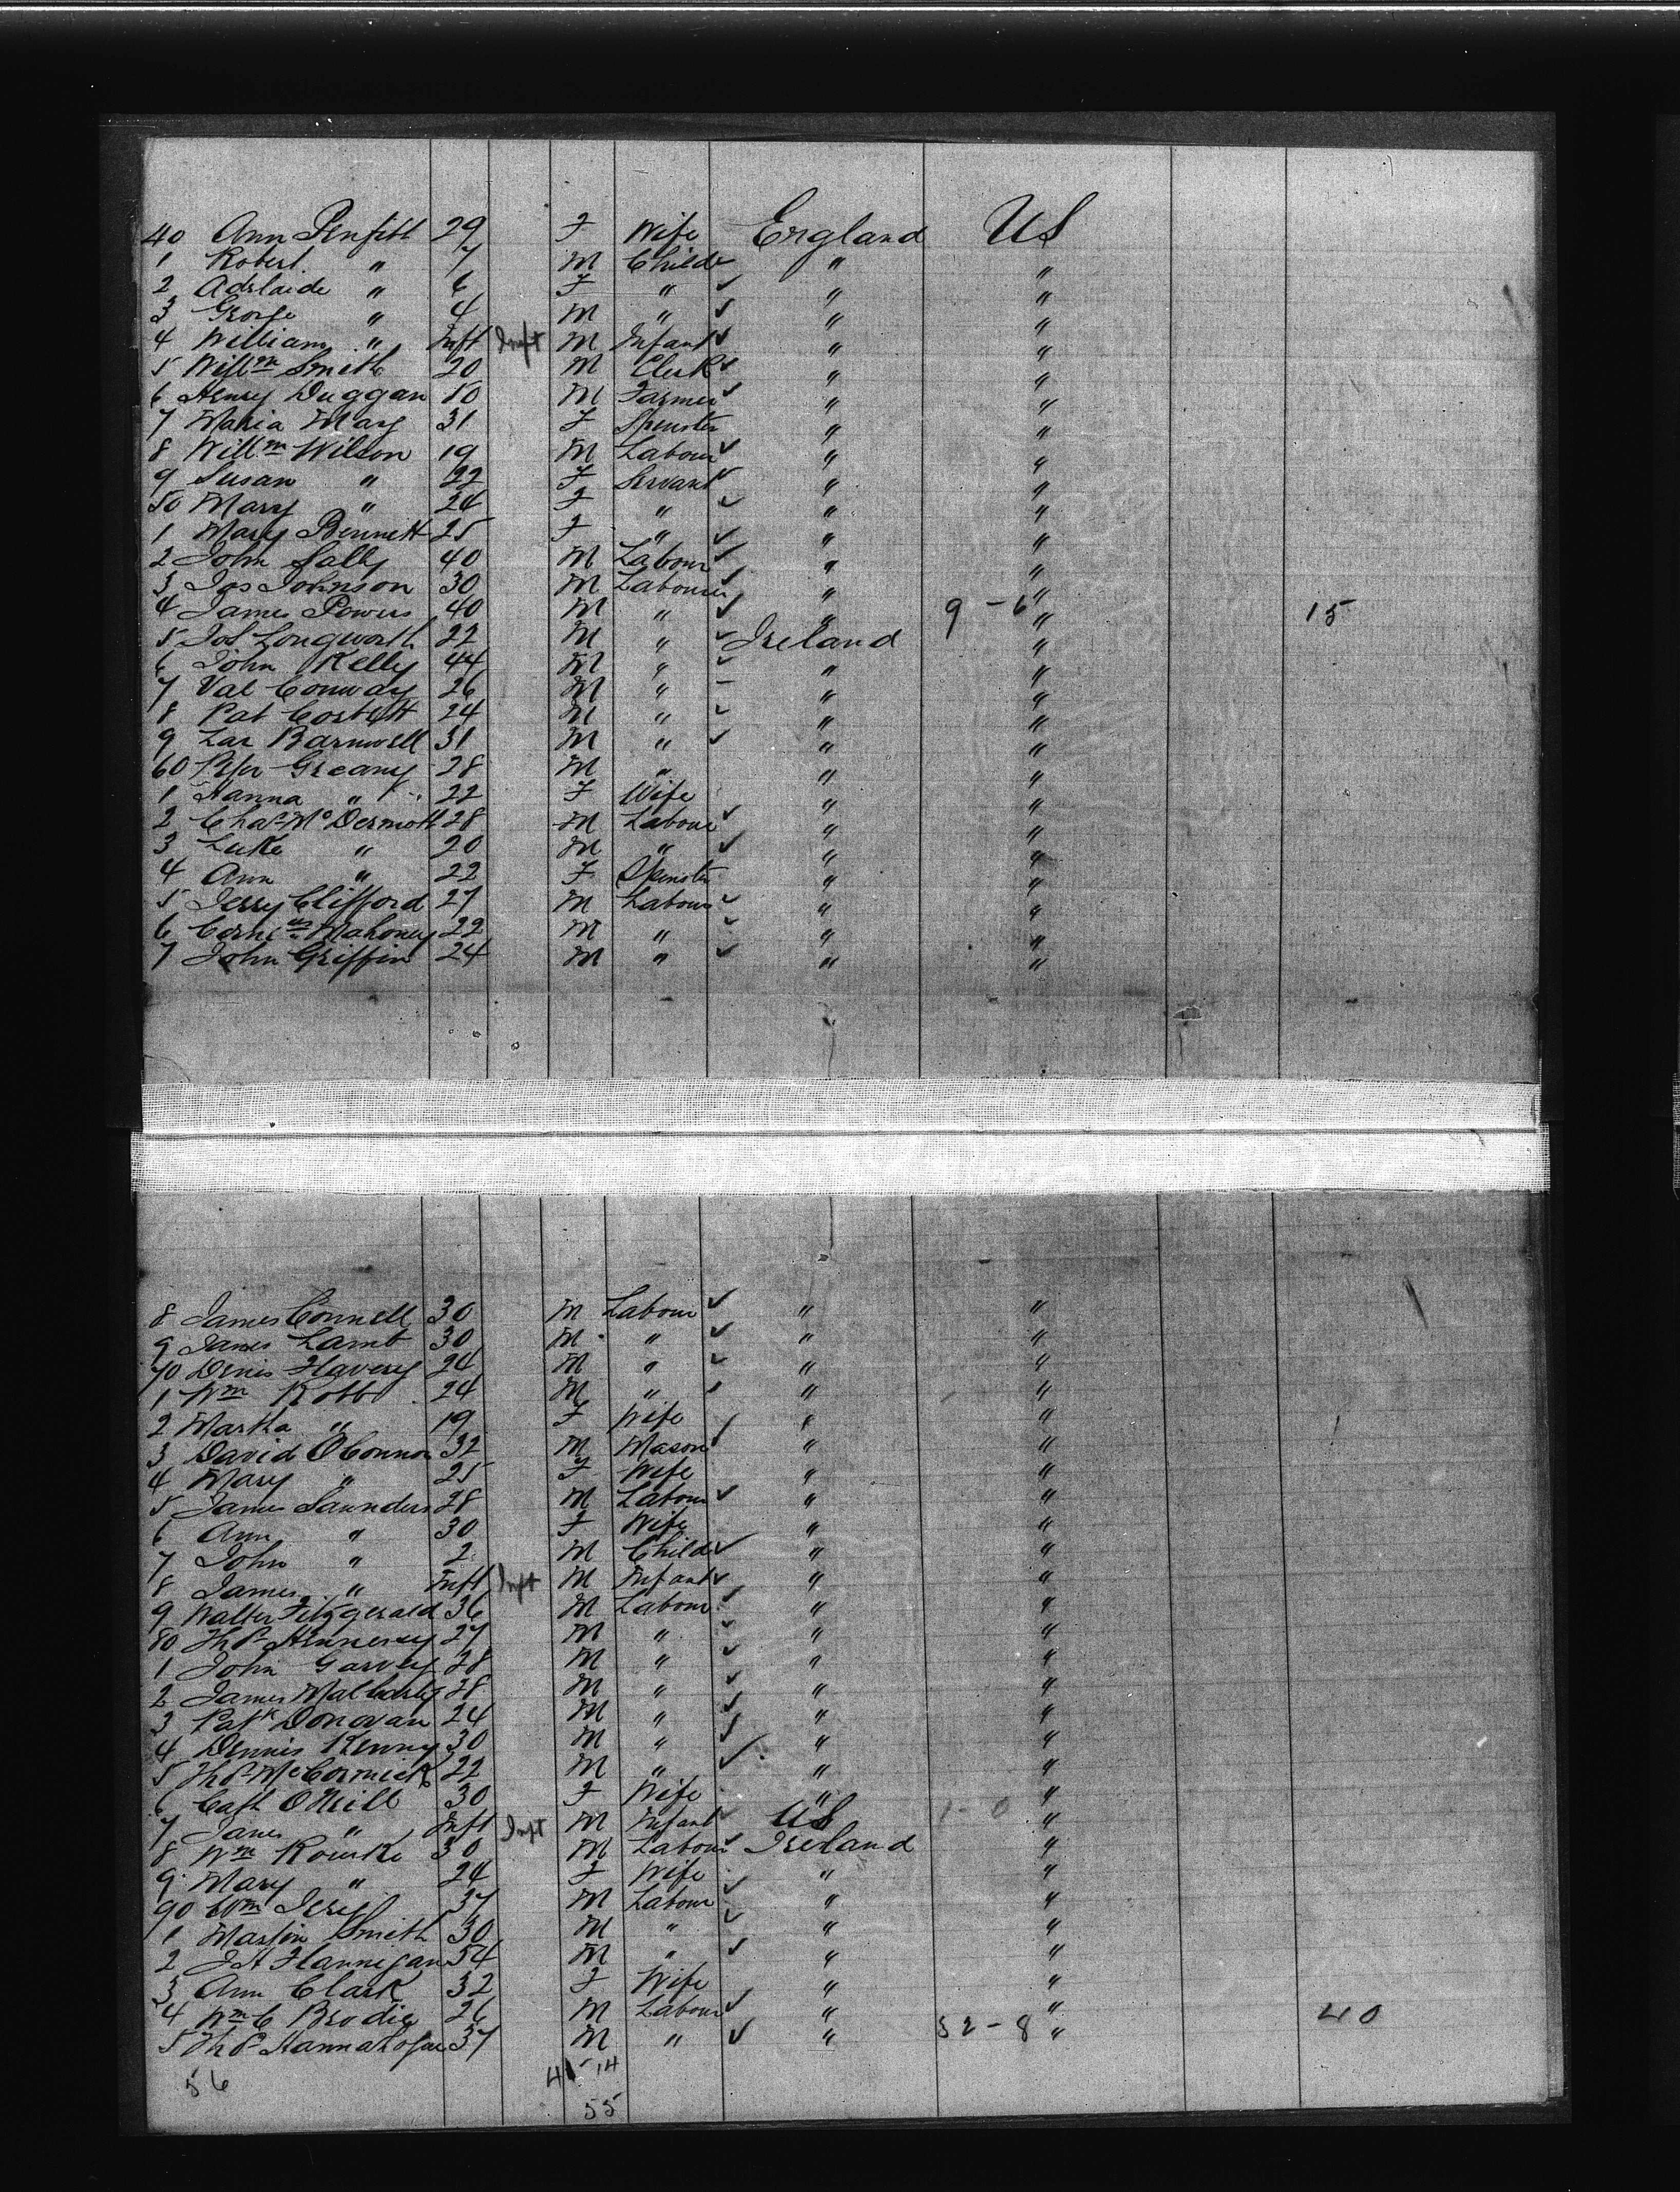 40 Ann Penfitt 29 F Wife England US
1 Robert " 7 M Child " "
2 Adelaide " 6 F " " "
3 George " 4 M " " "
4 William " Inft Inft M Infant " "
5 Willm Smith 20 M Clerk " "
6 Henry Duggan 18 M Farmer " "
7 Maria Mary 31 F Spinster " "
8 Willm Wilson 19 M Labour " "
9 Susan " 22 F Servant " "
50 Mary " 24 F " " "
1 Mary Bennett 25 F " " "
2 John Sally 40 M Labour " "
3 Jos Johnson 30 M Labourer " "
4 James Powers 40 M " " 9 - 6 " 15
5 Jos Longworth 22 M " Ireland "
6 John Kelly 44 M " " "
7 Val Conway 26 M " " "
8 Pat Costett 24 M " " "
9 Lar Barnwell 31 M " " "
60 Peter Greany 28 M " " "
1 Hanna " 22 F Wife " "
2 Chas McDermott 28 M Labour " "
3 Luke " 20 M " " "
4 Ann " 22 F Spinster " "
5 Jerry Clifford 27 M Labour " "
6 Cornius Mahoney 22 M " " "
7 John Griffin 24 M " " "
8 James Connell 30 M Labour " "
9 James Lamb 30 M " " "
70 Denis Flavery 24 M " " "
1 Wm Robb 24 M " " "
2 Martha " 19 F Wife " "
3 David OConnor 32 M Mason " "
4 Mary " 25 F Wife " "
5 James Saunders 28 M Labour " "
6 Ann " 30 F Wife " "
7 John " 2 M Child " "
8 James " Inft Inft M Infant " "
9 Walter Fitzgerald 36 M Labour " "
80 Thos Hennersy 27 M " " "
1 John Garvey 28 M " " "
2 James 28 M " " "
3 Patk Donovan 24 M " " "
4 Dennis Kenny 30 M " " "
5 Thos McCormick 22 M " " "
6 Cath ONeill 30 F Wife " "
7 James " Inft Inft M Infant US 1 - 0 "
8 Wm Rourke 30 M Labour Ireland "
9 Mary " 24 F Wife " "
90 Wm 37 M Labour " "
1 Martin Smith 30 M " " "
2 J H Flannigan 54 M " " "
3 Ann Clark 32 F Wife " "
4 Wm C Brodie 26 M Labour " "
5 Thos 37 M " " 52 - 8 " 40
56 41 14
55